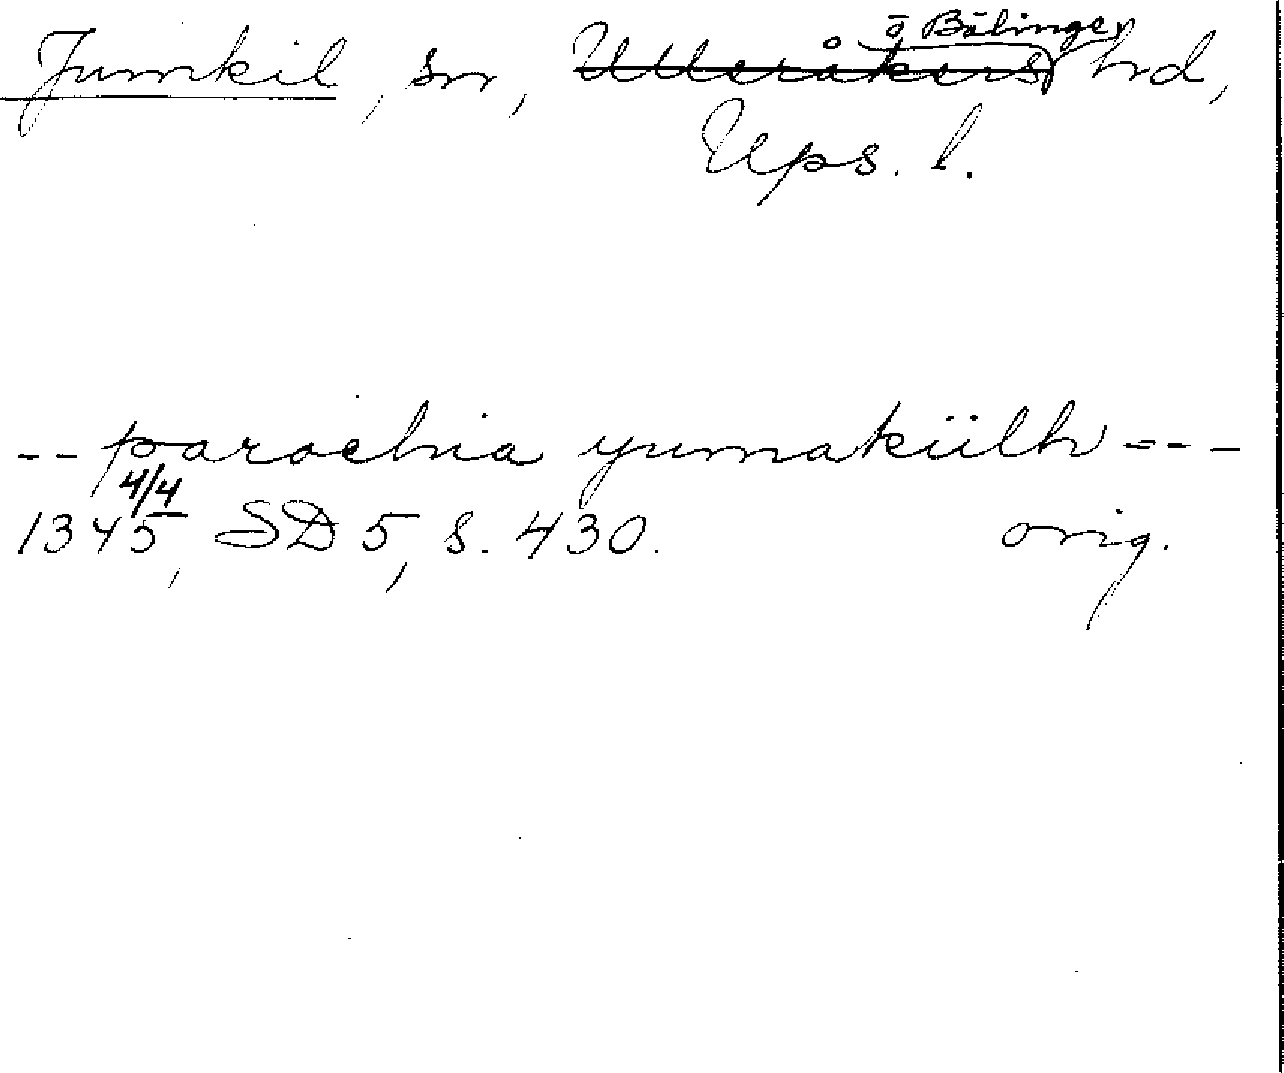 Jumkil, sn, Ulleråkers ō Bälinge hd,
Ups. l.
-- parochia yumakiilh ---
4/4
1345, SD 5, s. 430. orig.